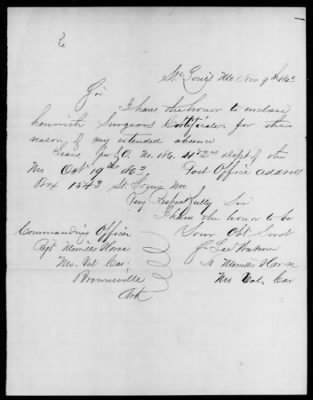 St Louis Mo Nov 9th 1863
Sir
I have the honor to enclose
herewith Surgeons Certificate for the
reason of my intended absence
Leave Genl O. No. 186. Dept of the
Mo Oct 19th 1863. Post Office address
Box 1543 St Louis Mo
Very Respectfully Sir
I have the honor to be
Commanding Officer
Your Obt Servt
Regt Merrills Horse
Mo. Vol Cav.
Merrills Horse
Brownsville
Mo Vol. Cav
Ark